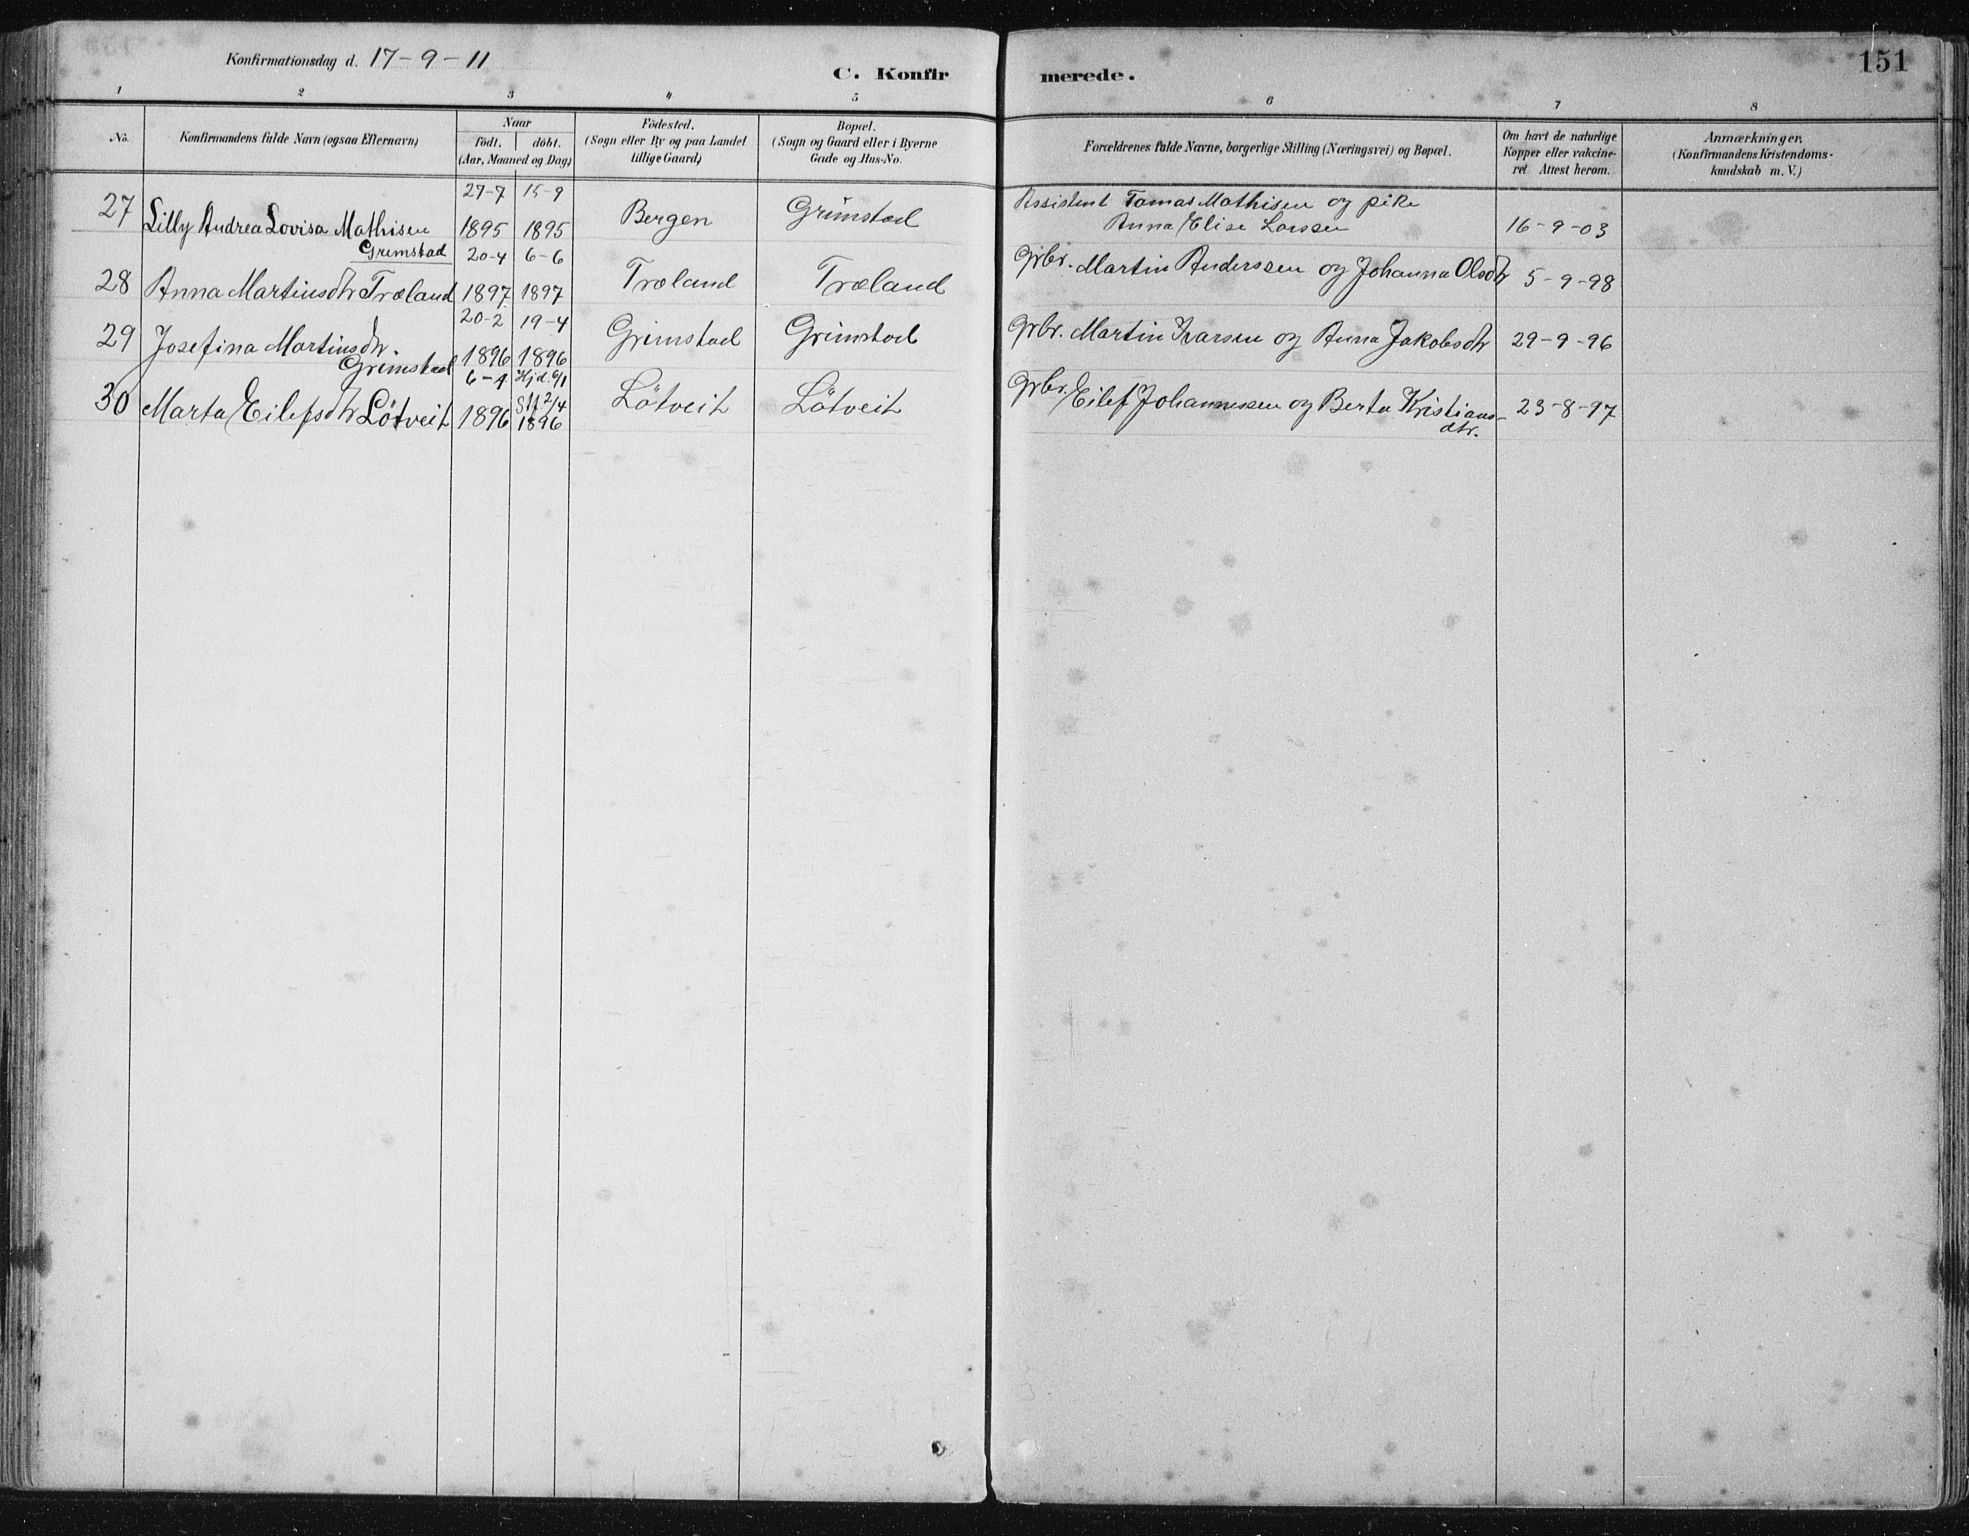 Konfirmationsdag d. 17-9-11
C. Konfirmerede.
151
1 2 3 4 5 6 7 8
No.
Konfirmandens fulde Navn (ogsaa Efternavn)
Naar
födt. döbt.
(Aar, Maaned og Dag)
Födested.
(Sogn eller By og paa Landet
tillige Gaard)
Bopæl.
(Sogn og Gaard eller i Byerne
Gade og Hus-No.
Forældrenes fulde Navne, borgerlige Stilling (Næringsvei) og Bopæl.
Om havt de naturlige
Kopper eller vakcine-
ret. Attest herom.
Anmærkninger,
(Konfirmandens Kristendoms-
kundskab m. V.)
27-7 15-9
27 Lilly Andrea Lovisa Mathisen 1895 1895 Bergen Grimstad Assistent Tomas Mathisen og pike
Grimstad Anna Elise Larssen 16-9-03
20-4 6-6
28 Anna Martinsdtr Træland 1897 1897 Træland Træland Grbr. Martin Anderssen og Johanna Olsdtr 5-9-98
20-2 19-4
29 Josefina Martinsdtr. 1896 1896 Grimstad Grimstad Grbr. Martin Ivarsen og Anna Jakobsdtr 29-9-96
Grimstad
6-1 Hjd. 6/1
30 Marta Eilefsdtr Lötveit 1896 Stf 2/4 Lötveit Lötveit Grbr. Eilef Johannessen og Berta Kristians- 23-8-97
1896 dtr.